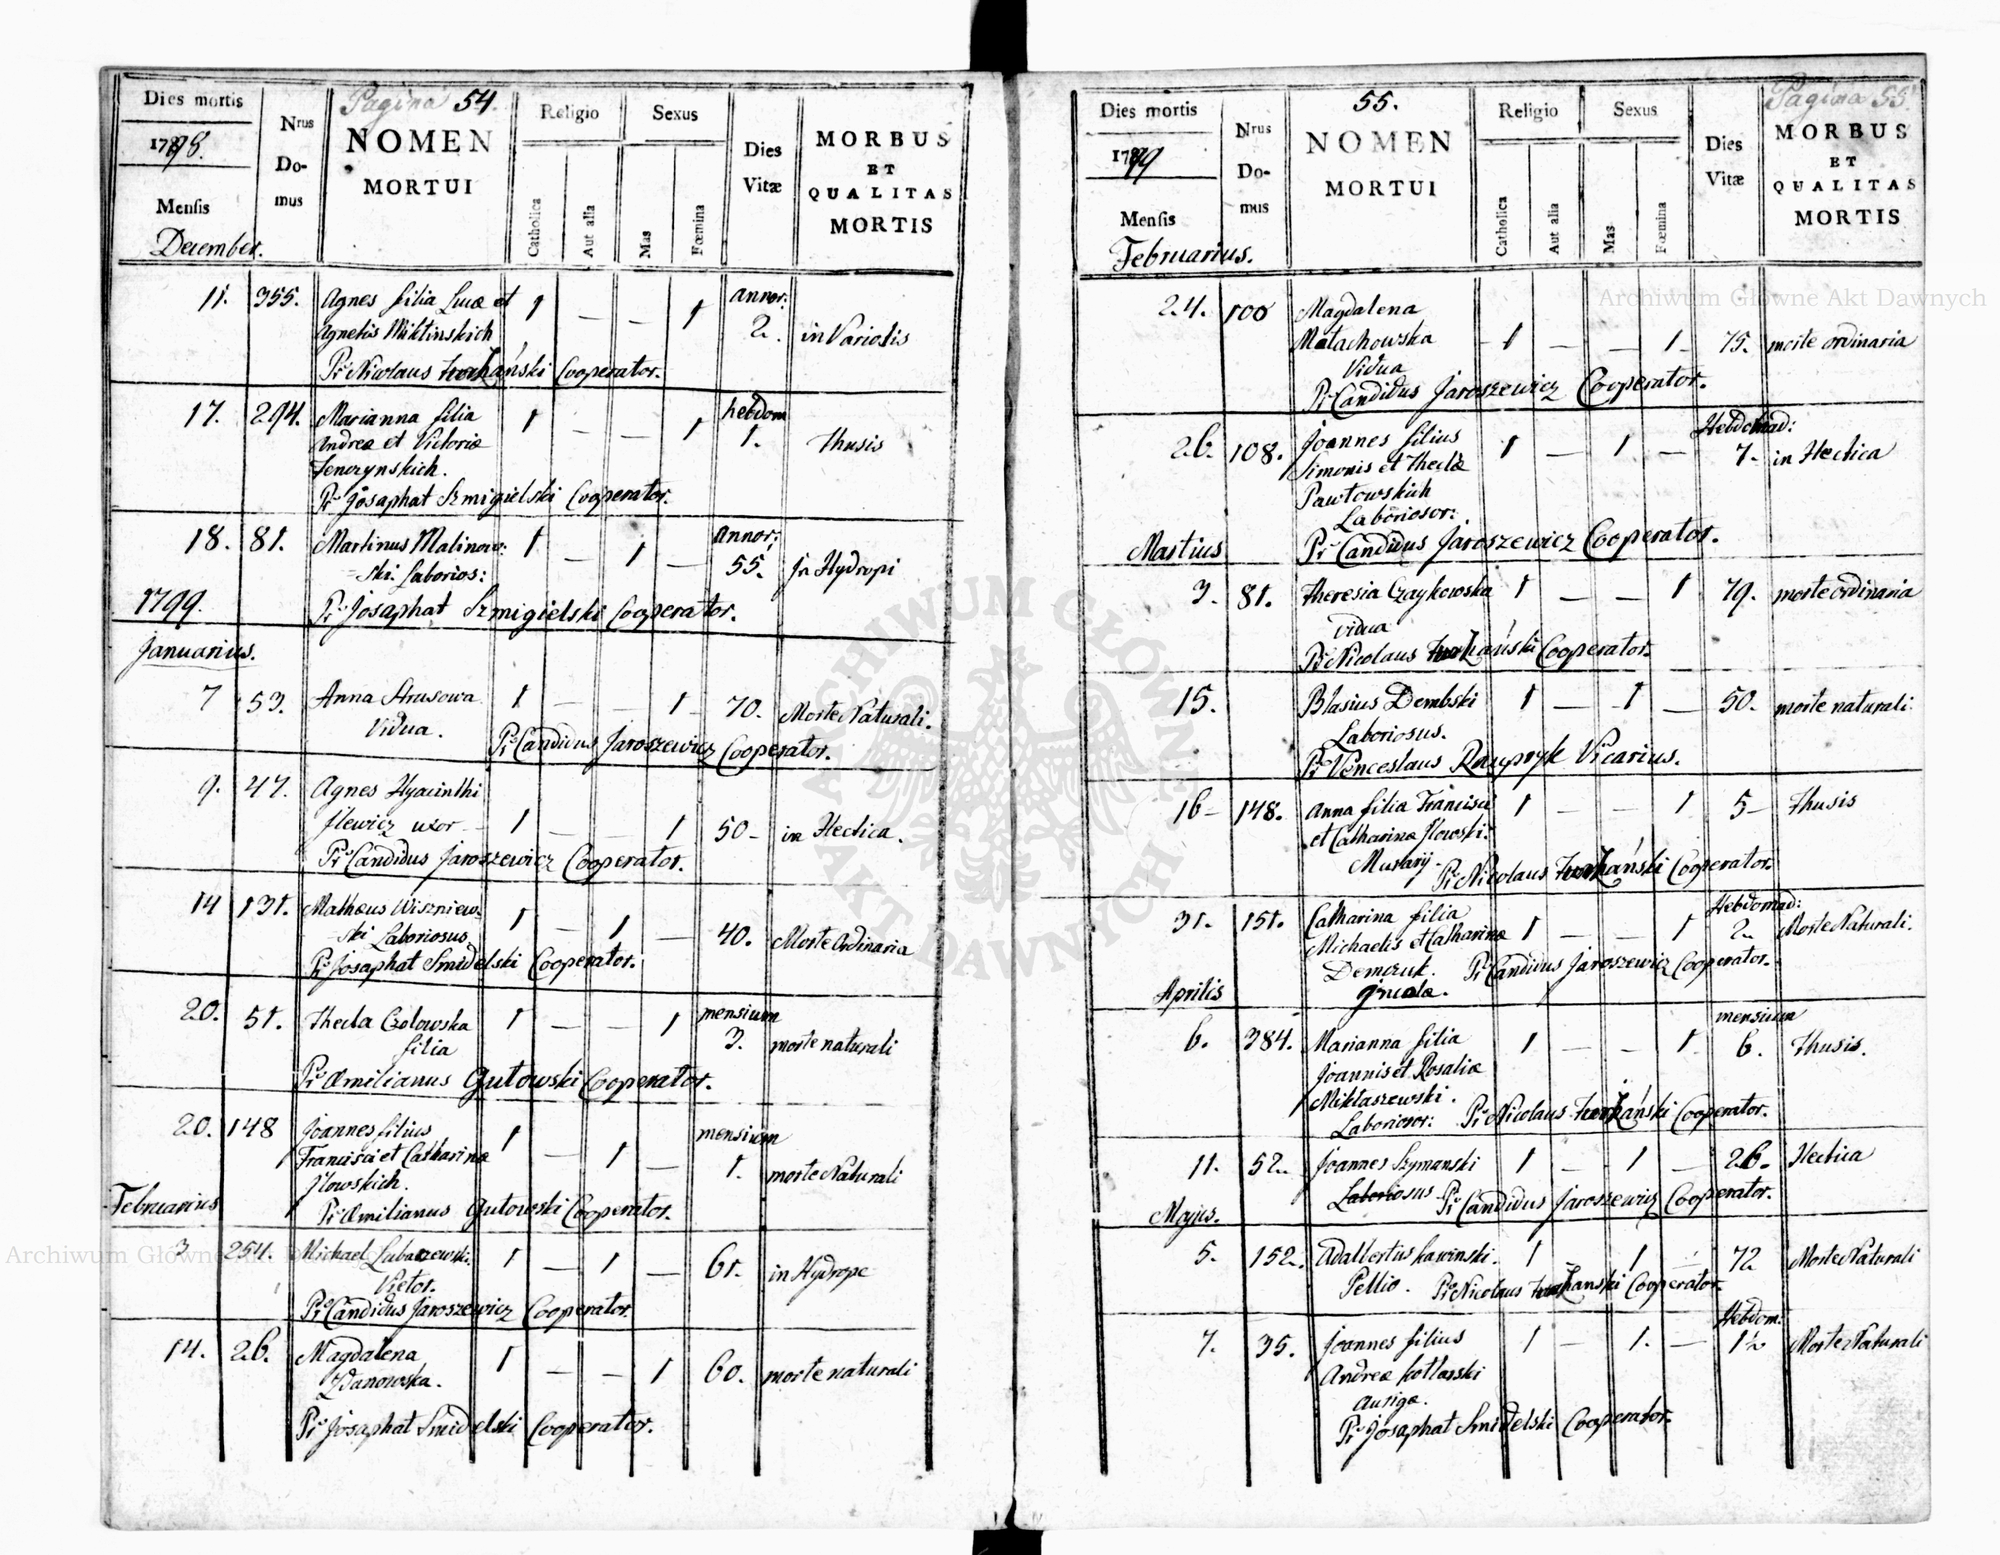 Pagina 54.
Dies mortis
1798.
Mensis
December.
Nrus
Do-
mus
NOMEN
MORTUI
Religio
Catholica
Aut alia
Sexus
Mas
Fœmina
Dies
Vitæ
MORBUS
ET
QUALITAS
MORTIS
11. 355. Agnes filia Lucæ et 1 — — 1 annor:
Agnetis Miktinskich 2. in Variolis
Pr Nicolaus Cooperator.
17. 294. Marianna filia 1 — — 1 hebdom
Andreæ et Victoriæ 1. Thusis
Tenczynskich.
Pr Josaphat Szmigielski Cooperator.
18. 81. Martinus Malinow: 1 — 1 — annor:
=ski Laborios: 55. In Hydropi
1799. Pr Josaphat Szmigielski Cooperator.
Januarius.
7 53. Anna Strusowa 1 — — 1 70. Morte Naturali.
Vidua. Pr Candidus Jaroszewicz Cooperator.
9. 47. Agnes Hyacinthi
Jlewicz uxor 1 — — 1 50 — in Hectica.
Pr Candidus Jaroszewicz Cooperator.
14 131. Mathæus Wiszniew- 1 — 1 — 40. Morte Ordinaria
ski Laboriosus
Pr Josaphat Smidelski Cooperator.
20. 51. Thecla Czolowska 1 — — 1 mensium
filia 3. morte naturali
Pr Æmilianus Gutowski Cooperator.
20. 148 Joannes filius 1 — 1 — mensium
Francisci et Catharinæ 1. morte Naturali
Jlowskich.
Februarius Pr Æmilianus Gutowski Cooperator.
3 254. Michael 1 — 1 — 61. in Hydrope
Vietor.
Pr Candidus Jaroszewicz Cooperator.
14. 26. Magdalena 1 — — 1 60. morte naturali
Zdanowska.
Pr Josaphat Smidelski Cooperator.
Pagina 55.
Dies mortis
1799
Mensis
Februarius.
Nrus
Do-
mus
55.
NOMEN
MORTUI
Religio
Catholica
Aut alia
Sexus
Mas
Fœmina
Dies
Vitæ
MORBUS
ET
QUALITAS
MORTIS
24. 100 Magdalena
Matachowska — 1 — — 1 — 75. morte ordinaria
Vidua
Pr Candidus Jaroszewicz Cooperator.
26. 108. Joannes filius 1 — 1 — Hebdomad:
Simonis et Theclæ 7. in Hectica
Pawtowskich
Laboriosor:
Martius Pr Candidus Jaroszewicz Cooperator.
3. 81. Theresia Czaykowska 1 — — 1 79. morte ordinaria
vidua
Pr Nicolaus Cooperator.
15. Blasius Dembski 1 — 1 — 50. morte naturali.
Laboriosus.
Pr Venceslaus Vicarius.
16 — 148. Anna filia Francisci 1 — — 1 5 — Thusis
et Catharinæ Jlowski:
Pr Nicolaus Cooperator.
31. 151. Catharina filia 1 — — 1 Hebdomad:
Michaelis et Catharinæ 2. Morte Naturali.
Demczuk. Pr Candidus Jaroszewicz Cooperator.
Aprilis
6. 384. Marianna filia 1 — — 1 mensium
Joannis et Rosaliæ 6. Thusis.
Miktaszewski.
Laboriosor: Pr Nicolaus Cooperator.
11. 52. Joannes Szymanski 1 — 1 — 26. Hectica
Laboriosus Pr Candidus Jaroszewicz Cooperator.
Majus.
5. 152. Adalbertus Kawinski. 1 1 72 Morte Naturali
Pellio. Pr Nicolaus Cooperator.
7. 35. Joannes filius 1 — 1. — Hebdom:
Andreæ Kotlarski 1½ Morte Naturali
Auriga.
Pr Josaphat Smidelski Cooperator.
Archiwum Główne Akt Dawnych
Archiwum Główne Akt Dawnych
ARCHIWUM GŁÓWNE AKT DAWNYCH